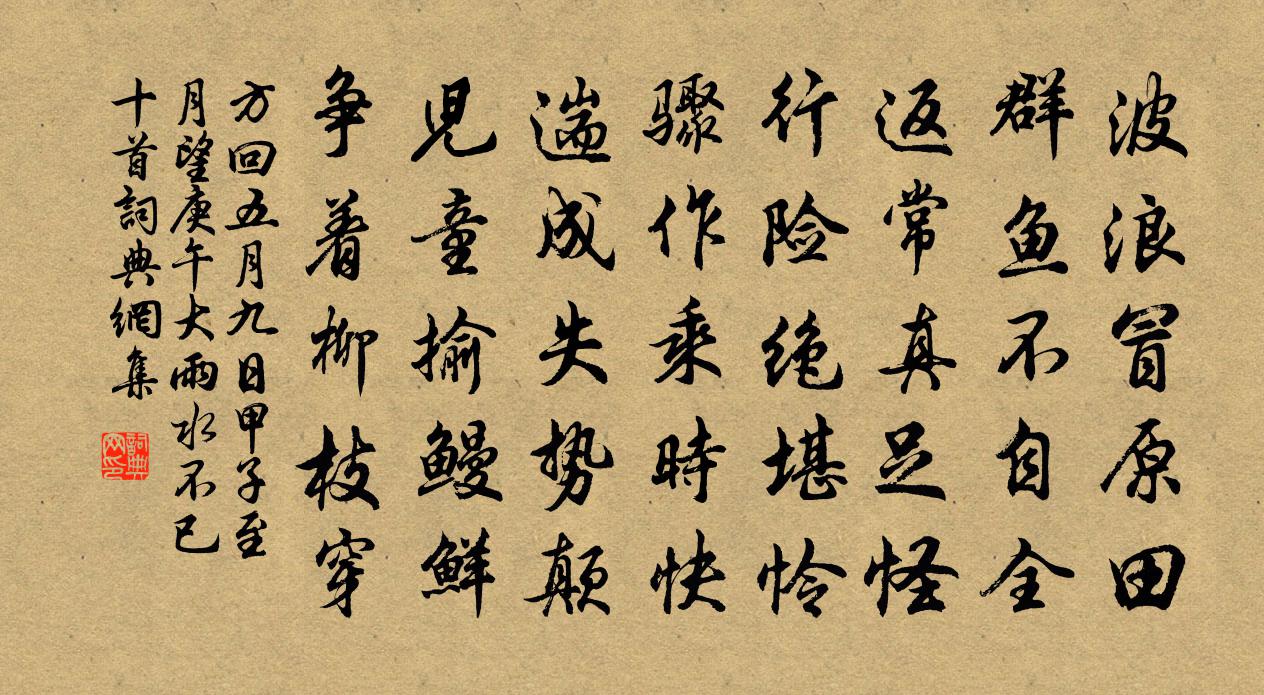 波浪冒原田
群鱼不自全
返常真足怪
行险绝堪怜
骤作乘時快
遄成失势颠
児童揄鳗鲜
争着柳枝穿
方回五月九日甲子至
月望庚午大雨水不已
十首詞典網集
詞典网印